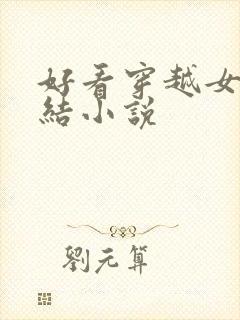 好看穿越女
結小說
劉元算